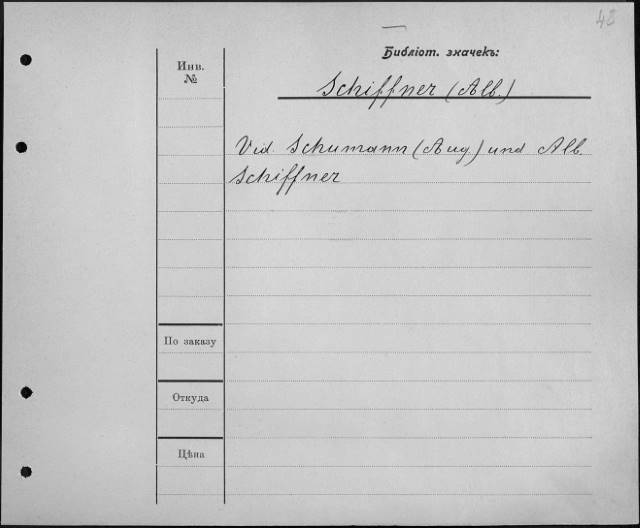 48
Библіот. значекъ:
Инв.
№
Schiffner (Alb.)
Vid. Schumann (Aug.) und Alb.
Schiffner
По заказу
Откуда
Цѣна